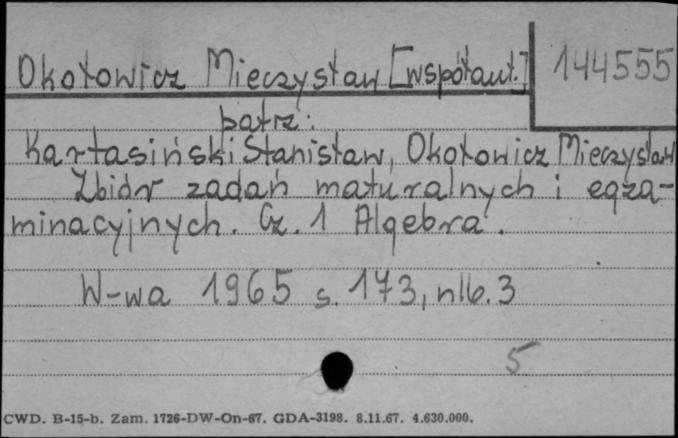 Okołowicz Mieczysław [współaut.] 144555
patrz:
Kartasiński Stanisław, Okołowicz Mieczysław
Zbiór zadań maturalnych i egza-
minacyjnych. Cz. 1 Algebra.
W-wa 1965 s. 173, nlb. 3
5
CWD. B-15-b. Zam. 1726-DW-On-67. GDA-3198. 8.11.67. 4.630.000.